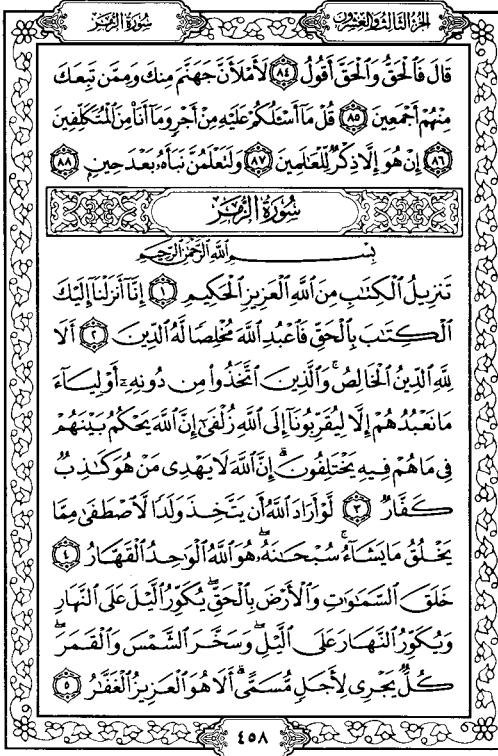 سُورَةُ الزُّمَرِ الجُزْءُ الثَّالِثُ وَالعِشْرُونَ
قَالَ فَٱلْحَقُّ وَٱلْحَقَّ أَقُولُ ٨٤ لَأَمْلَأَنَّ جَهَنَّمَ مِنكَ وَمِمَّن تَبِعَكَ
مِنْهُمْ أَجْمَعِينَ ٨٥ قُلْ مَآ أَسْـَٔلُكُمْ عَلَيْهِ مِنْ أَجْرٍ وَمَآ أَنَا۠ مِنَ ٱلْمُتَكَلِّفِينَ
٨٦ إِنْ هُوَ إِلَّا ذِكْرٌ لِّلْعَٰلَمِينَ ٨٧ وَلَتَعْلَمُنَّ نَبَأَهُۥ بَعْدَ حِينِۭ ٨٨
سُورَةُ الزُّمَرِ
بِسْمِ ٱللَّهِ ٱلرَّحْمَٰنِ ٱلرَّحِيمِ
تَنزِيلُ ٱلْكِتَٰبِ مِنَ ٱللَّهِ ٱلْعَزِيزِ ٱلْحَكِيمِ ١ إِنَّآ أَنزَلْنَآ إِلَيْكَ
ٱلْكِتَٰبَ بِٱلْحَقِّ فَٱعْبُدِ ٱللَّهَ مُخْلِصًا لَّهُ ٱلدِّينَ ٢ أَلَا
لِلَّهِ ٱلدِّينُ ٱلْخَالِصُ ۚ وَٱلَّذِينَ ٱتَّخَذُوا۟ مِن دُونِهِۦٓ أَوْلِيَآءَ
مَا نَعْبُدُهُمْ إِلَّا لِيُقَرِّبُونَآ إِلَى ٱللَّهِ زُلْفَىٰٓ إِنَّ ٱللَّهَ يَحْكُمُ بَيْنَهُمْ
فِى مَا هُمْ فِيهِ يَخْتَلِفُونَ ۗ إِنَّ ٱللَّهَ لَا يَهْدِى مَنْ هُوَ كَٰذِبٌ
كَفَّارٌ ٣ لَّوْ أَرَادَ ٱللَّهُ أَن يَتَّخِذَ وَلَدًا لَّٱصْطَفَىٰ مِمَّا
يَخْلُقُ مَا يَشَآءُ ۚ سُبْحَٰنَهُۥ ۖ هُوَ ٱللَّهُ ٱلْوَٰحِدُ ٱلْقَهَّارُ ٤
خَلَقَ ٱلسَّمَٰوَٰتِ وَٱلْأَرْضَ بِٱلْحَقِّ ۖ يُكَوِّرُ ٱلَّيْلَ عَلَى ٱلنَّهَارِ
وَيُكَوِّرُ ٱلنَّهَارَ عَلَى ٱلَّيْلِ ۖ وَسَخَّرَ ٱلشَّمْسَ وَٱلْقَمَرَ ۖ
كُلٌّ يَجْرِى لِأَجَلٍ مُّسَمًّى ۗ أَلَا هُوَ ٱلْعَزِيزُ ٱلْغَفَّٰرُ ٥
٤٥٨